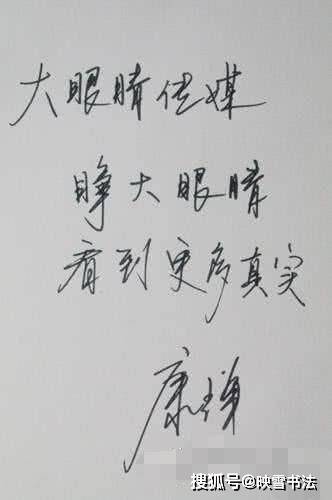 大眼睛传媒
睁大眼睛
看到更多真实
康辉
搜狐号@映雪书法